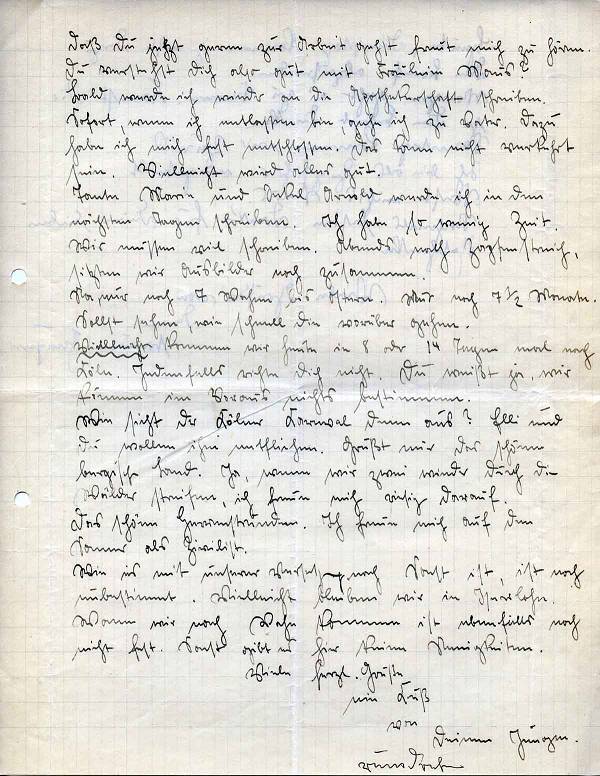 Daß Du jetzt gerne zur Arbeit gehst freut mich zu hören.
Du verstehst Dich also gut mit Fräulein Maus?
Bald werde ich wieder an die Apothekerschaft schreiben.
Sofort, wenn ich entlassen bin, gehe ich zu Vater. Dazu
habe ich mich fest entschlossen. Das kann nicht verkehrt
sein. Vielleicht wird alles gut.
Tante Maria und Onkel Arnold werde ich in den
nächsten Tagen schreiben. Ich habe so wenig Zeit.
Wir müssen viel schreiben. Abends nach Zapfenstreich,
sitzen wir Ausbilder noch zusammen.
Na, nur noch 7 Wochen bis Ostern. Nur noch 7 1/2 Monate.
Sollst sehen wie schnell die vorüber gehen.
Vielleicht kommen wir heute in 8 oder 14 Tagen mal nach
Köln. Jedenfalls richte Dich nicht. Du weißt ja, wir
können im Voraus nichts bestimmen.
Wie sieht der Kölner Karneval denn aus? Elli und
Du wollen ihm entfliehen. Grüßt mir das schöne
bergische Land. Ja, wenn wir zwei wieder durch die
Wälder streifen, ich freue mich riesig darauf.
Das schöne. Ich freue mich auf den
Sommer als Zivilist.
Wie es mit unserer nach Soest ist, ist noch
unbestimmt. Vielleicht bleiben wir in Iserlohn.
Wann wir nach Wahn kommen ist ebenfalls noch
nicht fest. Sonst gibt es hier keine Neuigkeiten.
Viele herzl. Grüße
ein Kuß
von
Deinem Jungen.